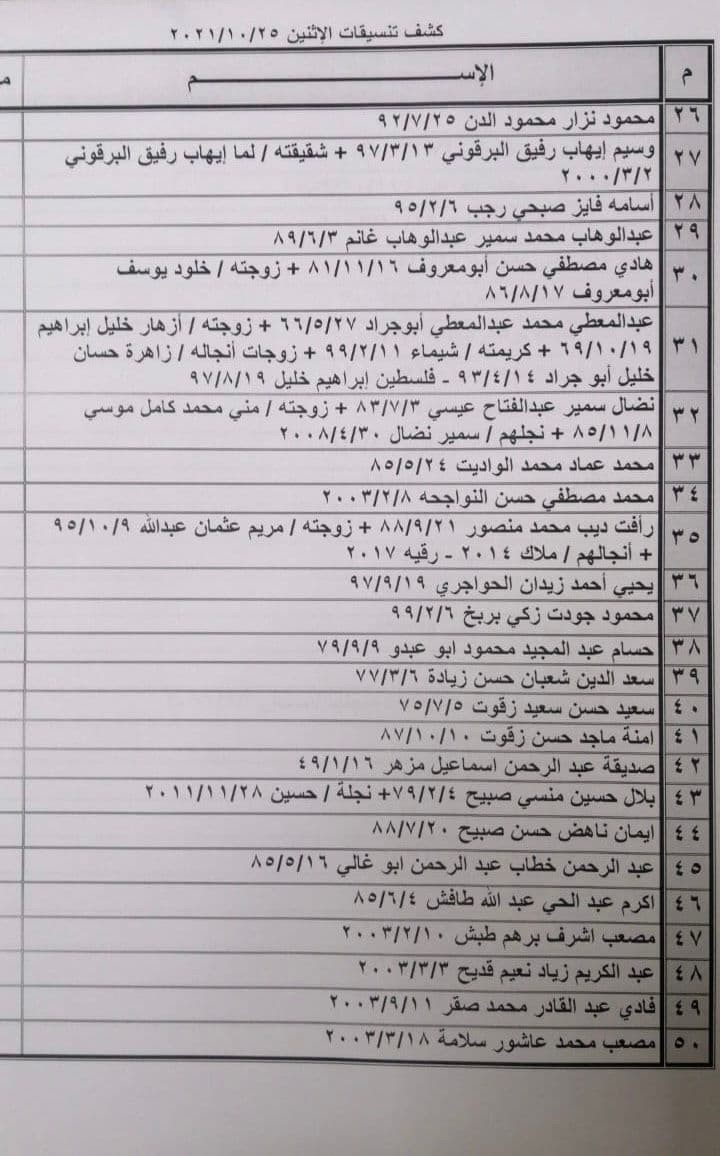 كشف تنسيقات الإثنين ٢٠٢١/١٠/٢٥
م الإســـــــــم
٢٦ محمود نزار محمود الدن ٩٢/٧/٢٥
٢٧ وسيم إيهاب رفيق البرقوني ٩٧/٣/١٣ + شقيقته / لما إيهاب رفيق البرقوني
٢٠٠٠/٣/٢
٢٨ أسامه فايز صبحي رجب ٩٥/٢/٦
٢٩ عبدالوهاب محمد سمير عبدالوهاب غانم ٨٩/٦/٣
٣٠ هادي مصطفي حسن أبومعروف ٨١/١١/١٦ + زوجته / خلود يوسف
أبومعروف ٨٦/٨/١٧
٣١ عبدالمعطي محمد عبدالمعطي أبوجراد ٦٦/٥/٢٧ + زوجته / أزهار خليل إبراهيم
٦٩/١٠/١٩ + كريمته / شيماء ٩٩/٢/١١ + زوجات أنجاله / زاهرة حسان
خليل أبو جراد ٩٣/٤/١٤ - فلسطين إبراهيم خليل ٩٧/٨/١٩
٣٢ نضال سمير عبدالفتاح عيسي ٨٣/٧/٣ + زوجته / مني محمد كامل موسي
٨٥/١١/٨ + نجلهم / سمير نضال ٢٠٠٨/٤/٣٠
٣٣ محمد عماد محمد الواديت ٨٥/٥/٢٤
٣٤ محمد مصطفي حسن النواجحه ٢٠٠٣/٢/٨
٣٥ رأفت ديب محمد منصور ٨٨/٩/٢١ + زوجته / مريم عثمان عبدالله ٩٥/١٠/٩
+ أنجالهم / ملاك ٢٠١٤ - رقيه ٢٠١٧
٣٦ يحيي أحمد زيدان الحواجري ٩٧/٩/١٩
٣٧ محمود جودت زكي بربخ ٩٩/٢/٦
٣٨ حسام عبد المجيد محمود ابو عبدو ٧٩/٩/٩
٣٩ سعد الدين شعبان حسن زيادة ٧٧/٣/٦
٤٠ سعيد حسن سعيد زقوت ٧٥/٧/٥
٤١ امنة ماجد حسن زقوت ٨٧/١٠/١٠
٤٢ صديقة عبد الرحمن اسماعيل مزهر ٤٩/١/١٦
٤٣ بلال حسين منسي صبيح ٧٩/٢/٤+ نجلة / حسين ٢٠١١/١١/٢٨
٤٤ ايمان ناهض حسن صبيح ٨٨/٧/٢٠
٤٥ عبد الرحمن خطاب عبد الرحمن ابو غالي ٨٥/٥/١٦
٤٦ اكرم عبد الحي عبد الله طافش ٨٥/٦/٤
٤٧ مصعب اشرف برهم طبش ٢٠٠٣/٢/١٠
٤٨ عبد الكريم زياد نعيم قديح ٢٠٠٣/٣/٣
٤٩ فادي عبد القادر محمد صقر ٢٠٠٣/٩/١١
٥٠ مصعب محمد عاشور سلامة ٢٠٠٣/٣/١٨